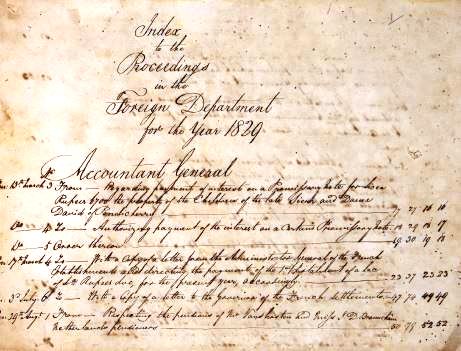 Index
to the
Proceedings
in the
Foreign Department
for the Year 1829
Accountant General
13th March 3 From — Regarding payment of interest on a Promissory Note for Sicca
Rupees the property of the Children of the late and
David of Pondicherry 27 27 16 16
Do — To — Authorizing payment of the interest on a certain Promissory Note 18 29 18 17
Do — 5 Order thereon 19 30 19 18
17th March 4 To — With a Copy of a letter from the Administrator General of the French
Establishments and directing the payment of the 1st Instalment of a lac
of Rupees due, for the present year, accordingly 23 37 23 23
3d July 6 To — With a Copy of a letter to the Governor of the French settlements 47 74 49 49
29th Augt 1 From — Respecting the pensions of Mr and
Netherlands pensioners 50 78 52 52